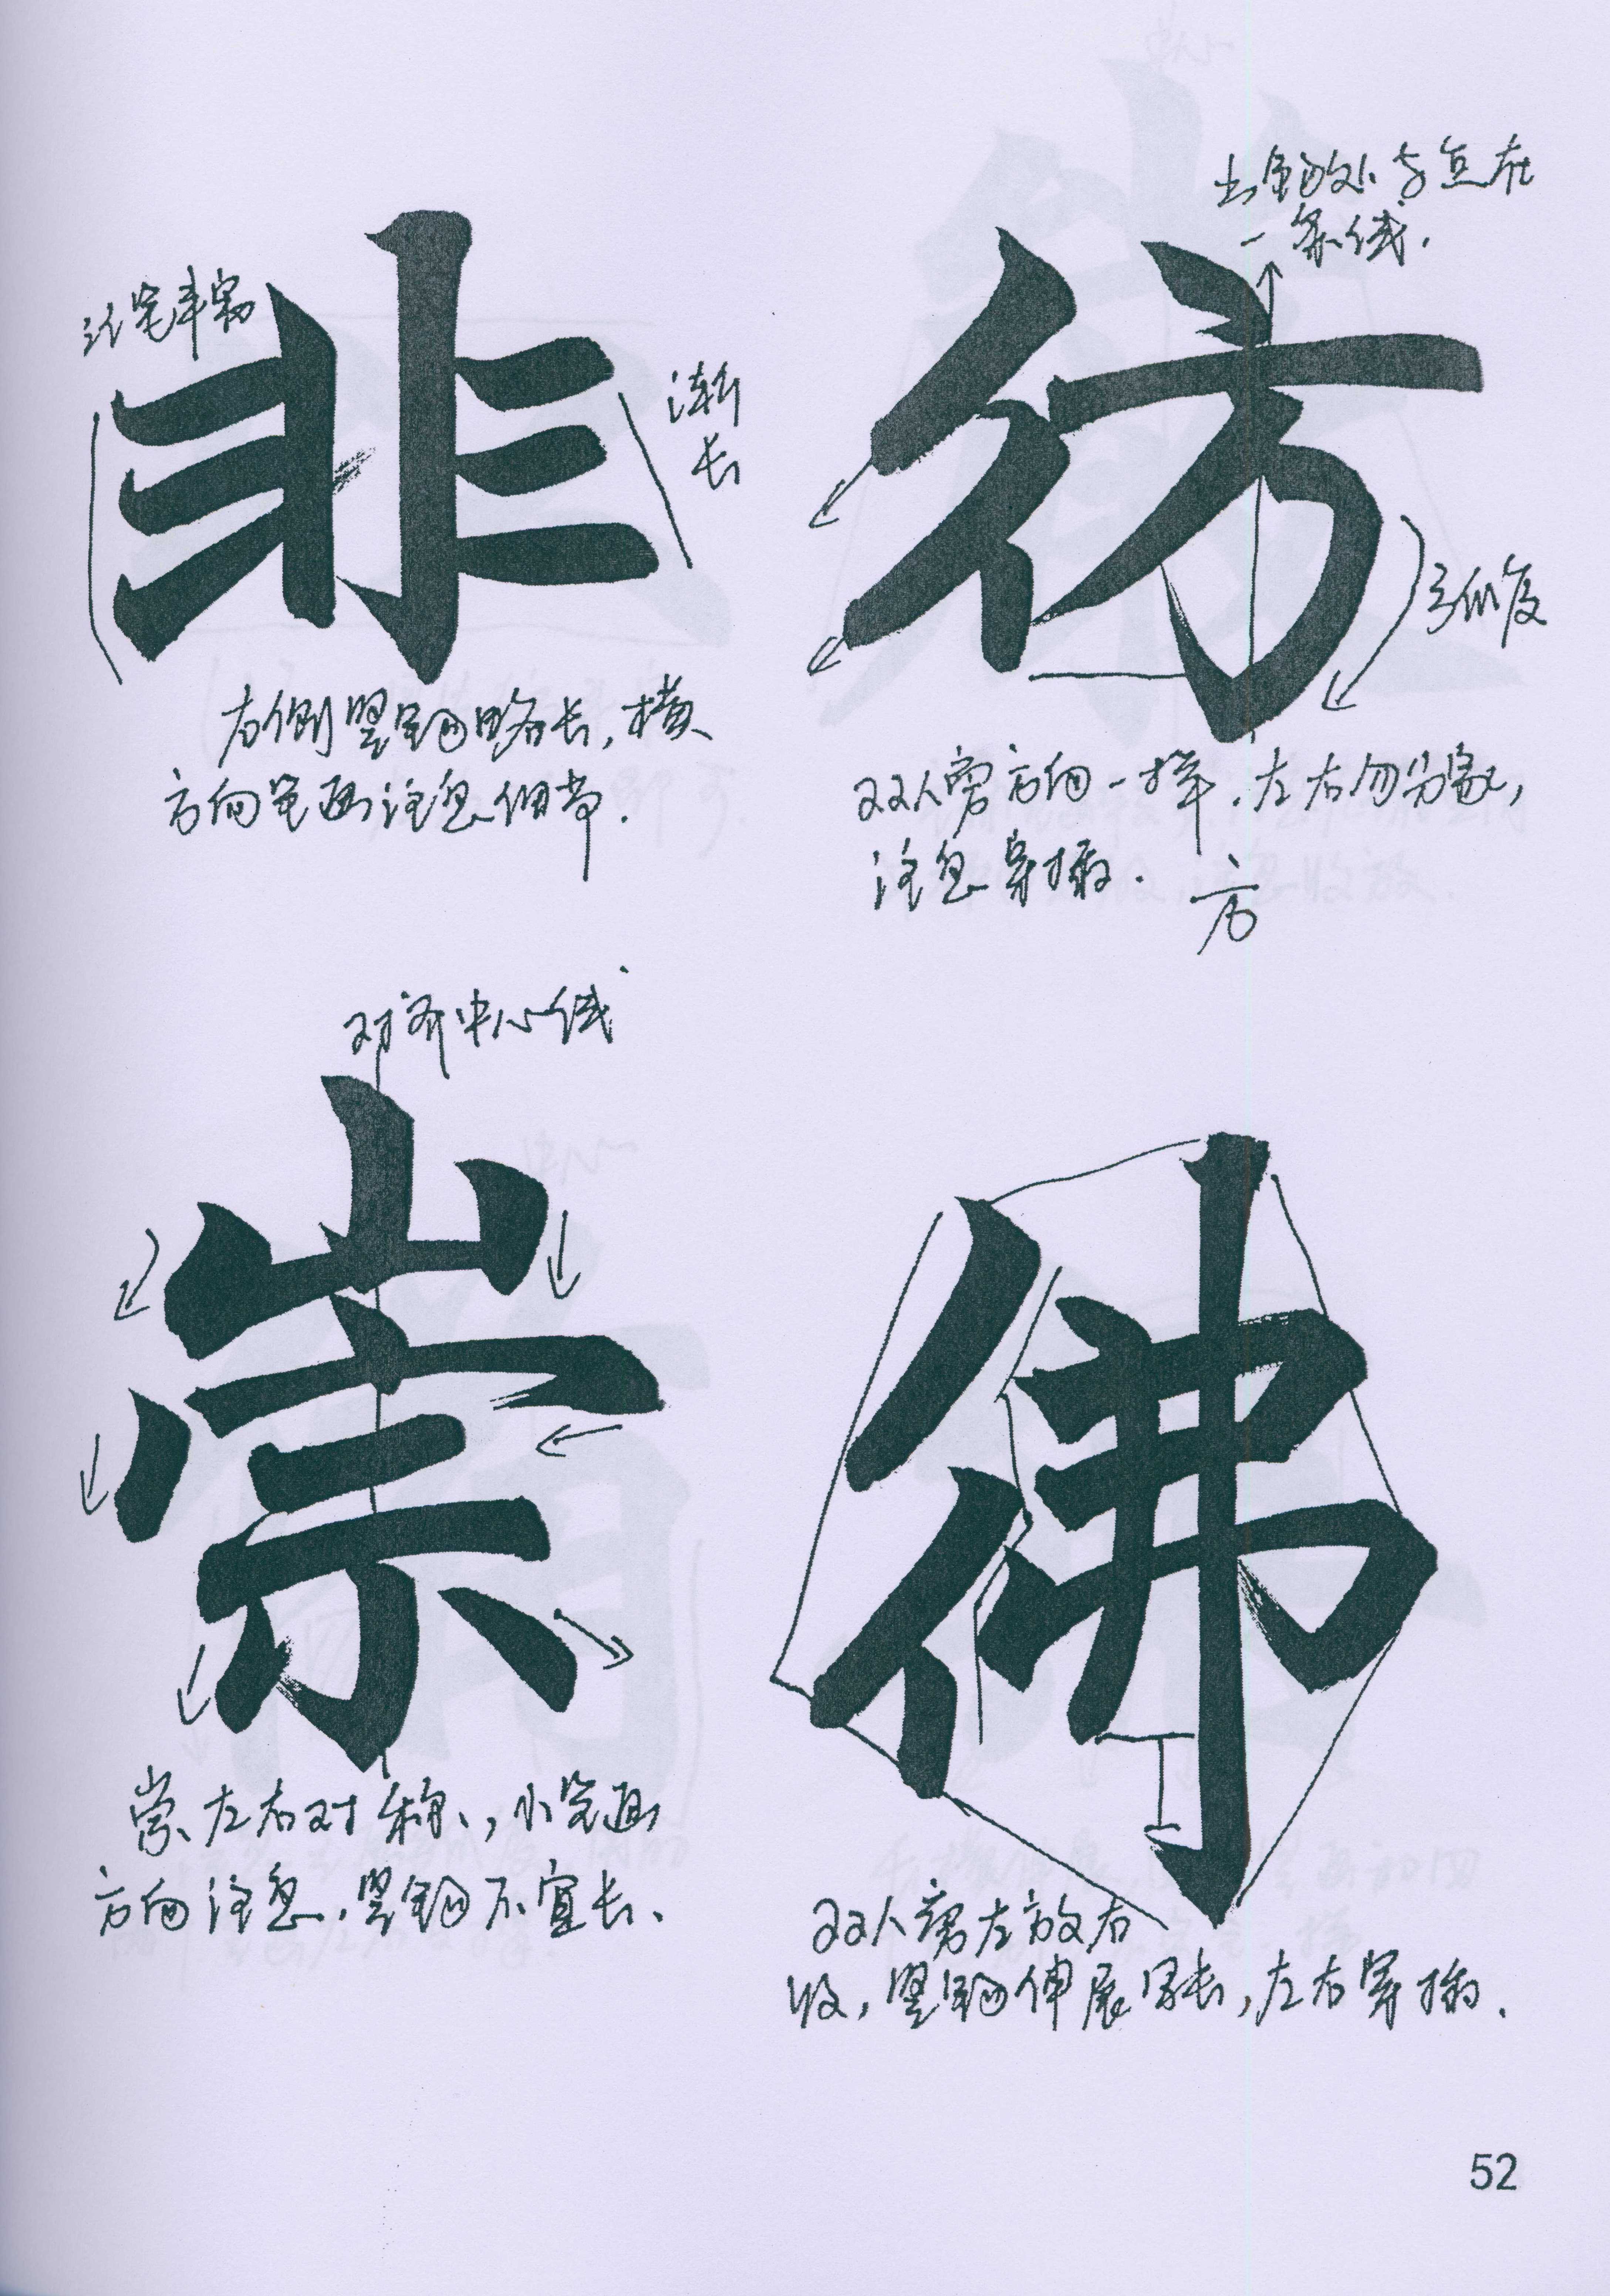 非
渐
长
右侧竖钩略长，横
方向笔画注意细节.
彷
出钩处与点在
一条线.
弧度
双人旁方向一样.左右勿分家，
注意穿插.
方
对齐中心线
崇
崇、左右对称、，小笔画
方向注意.竖钩不宜长、
彿
双人旁左放右
收，竖钩伸展写长，左右穿插.
52